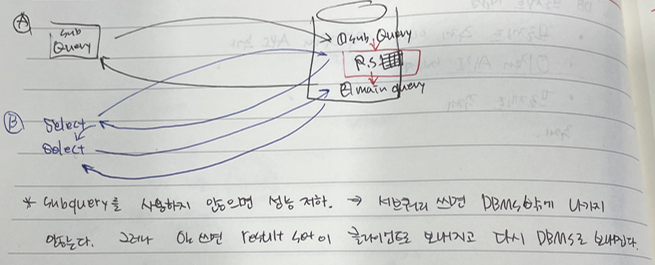 Ⓐ
Sub
Query
① Sub Query
R.S
② main query
Ⓑ Select
Select
* Subquery를 사용하지 안으면 성능 저하. → 서브쿼리 쓰면 DBMS밖에 나가지
안는다. 그러나 쓰면 result set이 클라이언트로 보내지고 다시 DBMS로 보내진다.